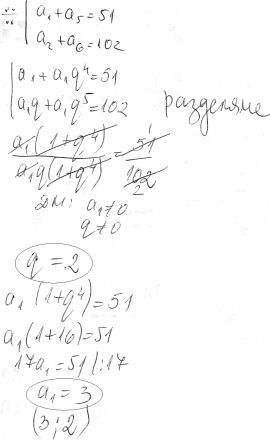 ∺ | a₁+a₅=51
a₂+a₆=102
| a₁+a₁q⁴=51
a₁q+a₁q⁵=102 разделяме
a₁(1+q⁴)/a₁q(1+q⁴) = 51/102 1 2
ДМ: a₁≠0
q≠0
q=2
a₁(1+q⁴)=51
a₁(1+16)=51
17a₁=51 |:17
a₁=3
(3;2)